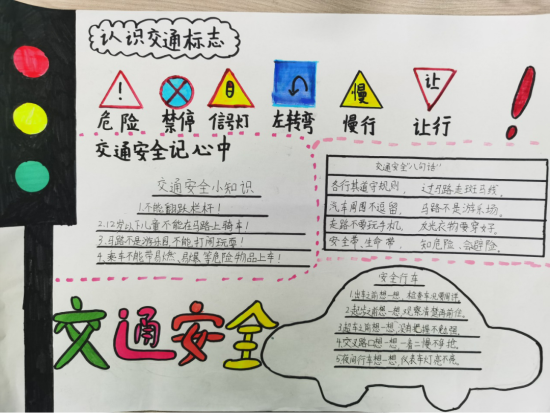 认识交通标志
!
慢
让
危险 禁停 信号灯 左转弯 慢行 让行
交通安全记心中
交通安全小知识
1.不能翻越栏杆!
2.12岁以下儿童不能在马路上骑车!
3.马路不是游乐园不能打闹玩耍!
4.乘车不能带易燃、易爆等危险物品上车!
交通安全"八句话"
各行其道守规则, 过马路走斑马线,
汽车周围不逗留, 马路不是游乐场,
走路不要玩手机, 反光衣物要穿好,
安全带,生命带, 知危险、会避险。
交通安全
安全行车
1.出车之前想一想,检查车况要周详。
2.起步之前想一想,观察清楚再前往。
3.超车之前想一想,没有把握不勉强。
4.交叉路口想一想,一看二慢不争抢。
5.夜间行车想一想,仪表车灯亮不亮。